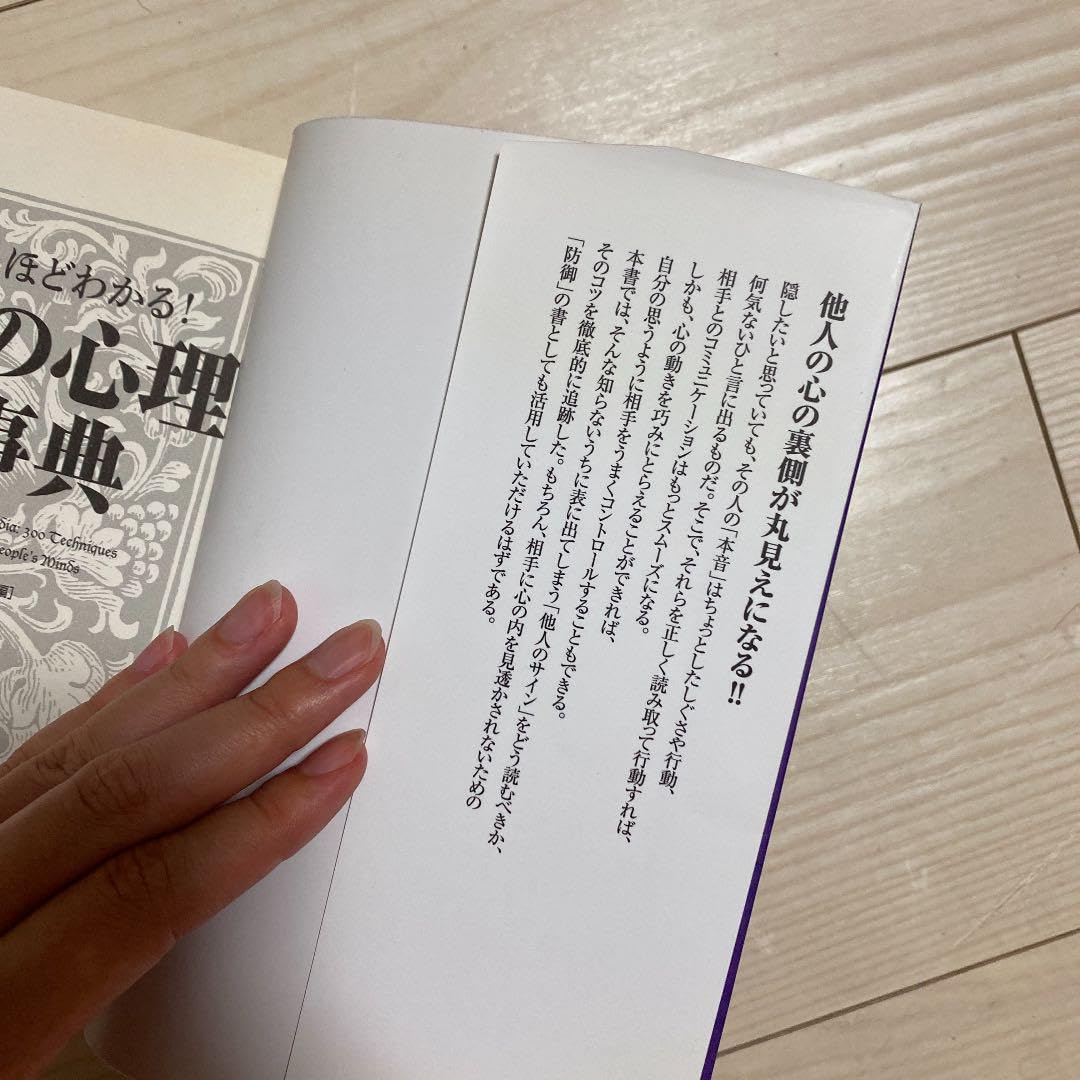 他人の心の裏側が丸見えになる!!
隠したいと思っていても、その人の「本音」はちょっとしたしぐさや行動、
何気ないひと言に出るものだ。そこで、それらを正しく読み取って行動すれば、
相手とのコミュニケーションはもっとスムーズになる。
しかも、心の動きを巧みにとらえることができれば、
自分の思うように相手をうまくコントロールすることもできる。
本書では、そんな知らないうちに表に出てしまう「他人のサイン」をどう読むべきか、
そのコツを徹底的に追跡した。もちろん、相手に心の内を見透かされないための
「防御」の書としても活用していただけるはずである。
ほどわかる!
の心理
事典
dia: 300 Techniques
eople's Minds
編]